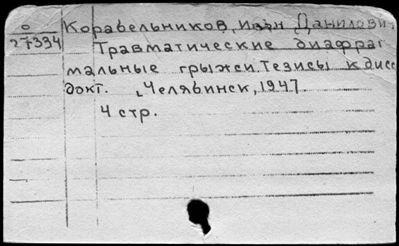 О
27334
Корабельников, Иван Данилович
Травматические диафраг
мальные грыжи. Тезисы к дисс
докт. Челябинск, 1947.
4 стр.